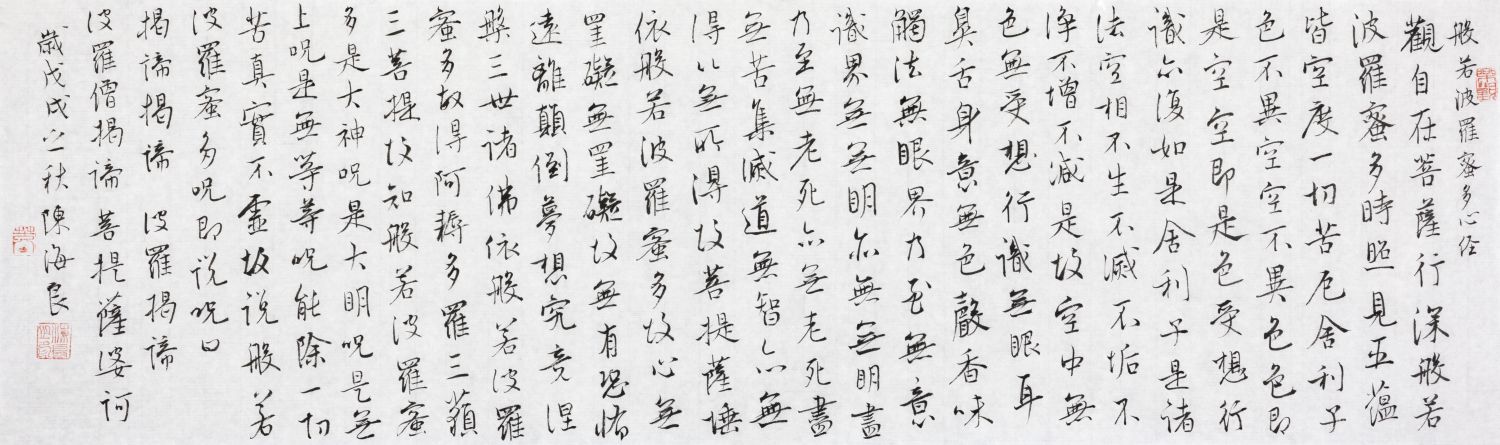 般若波羅蜜多心经
觀自在菩薩行深般若
波羅蜜多時照見五蘊
皆空度一切苦厄舍利子
色不異空空不異色色即
是空空即是色受想行
識亦復如是舍利子是諸
法空相不生不滅不垢不
淨不增不減是故空中無
色無受想行識無眼耳
鼻舌身意無色聲香味
觸法無眼界乃至無意
識界無無明亦無無明盡
乃至無老死亦無老死盡
無苦集滅道無智亦無
得以無所得故菩提薩埵
依般若波羅蜜多故心無
罣礙無罣礙故無有恐怖
遠離顛倒夢想究竟涅
槃三世諸佛依般若波羅
蜜多故得阿耨多羅三藐
三菩提故知般若波羅蜜
多是大神呪是大明呪是無
上呪是無等等呪能除一切
苦真實不虛故说般若
波羅蜜多呪即说呪曰
揭諦揭諦 波羅揭諦
波羅僧揭諦菩提薩婆訶
歲戊戌之秋陳海良